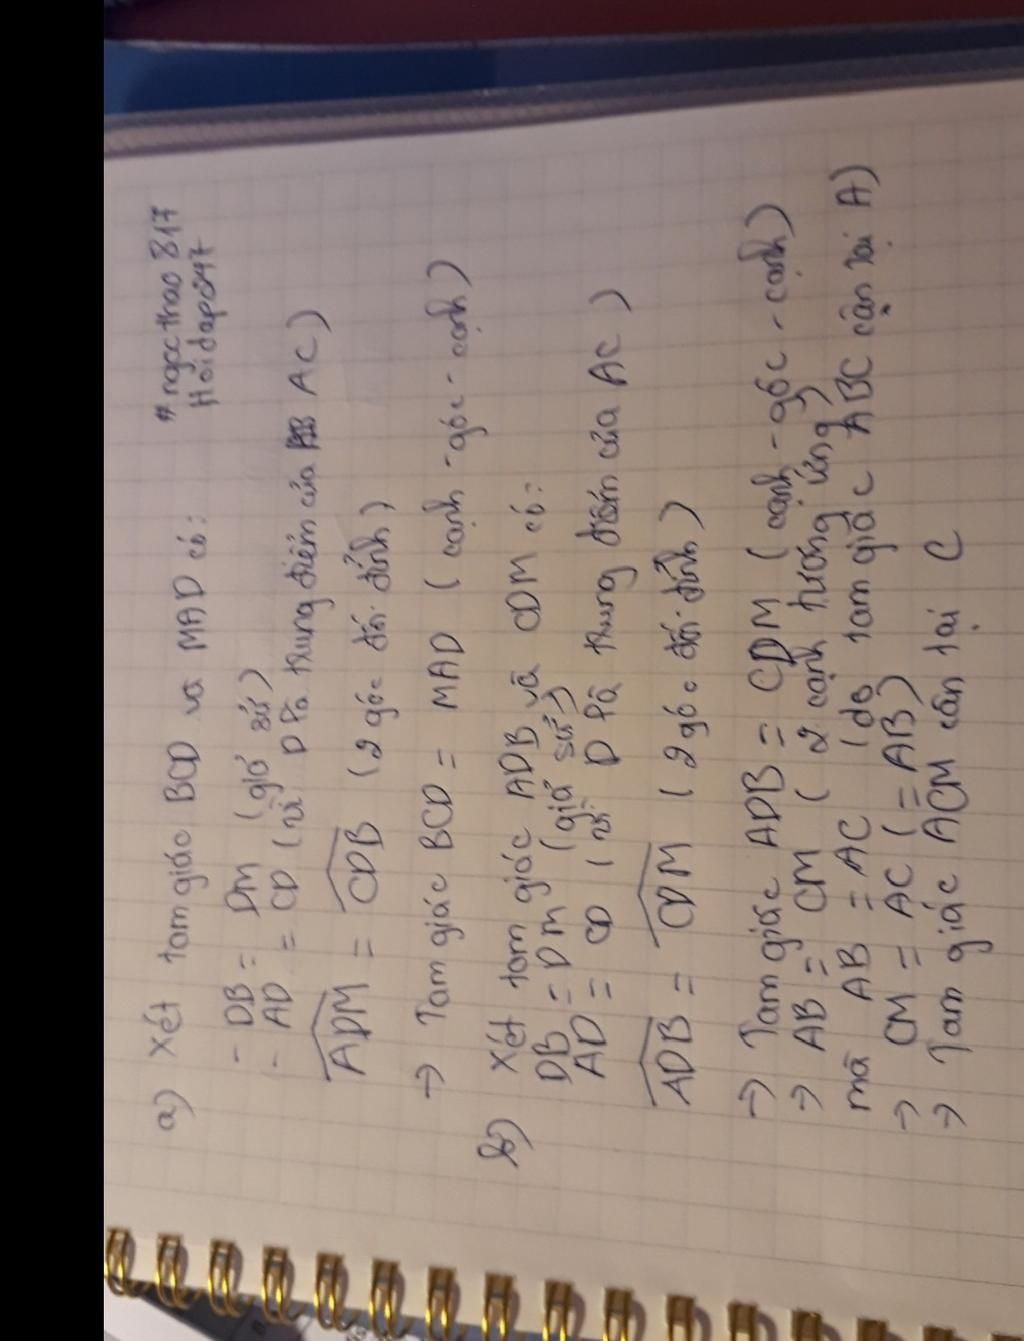 #ngocthao817
Hoidap247
a) Xét tam giác BCD và MAD có:
- DB = DM (giả sử)
- AD = CD (vì D là trung điểm của AC)
ADM = CDB (2 góc đối đỉnh)
→ Tam giác BCD = MAD (cạnh-góc-cạnh)
b) Xét tam giác ADB và CDM có:
DB = DM (giả sử)
AD = CD (vì D là trung điểm của AC)
ADB = CDM (2 góc đối đỉnh)
→ Tam giác ADB = CDM (cạnh-góc-cạnh)
→ AB = CM (2 cạnh tương ứng)
mà AB = AC (do tam giác ABC cận tại A)
→ CM = AC (= AB)
→ Tam giác ACM cân tại C